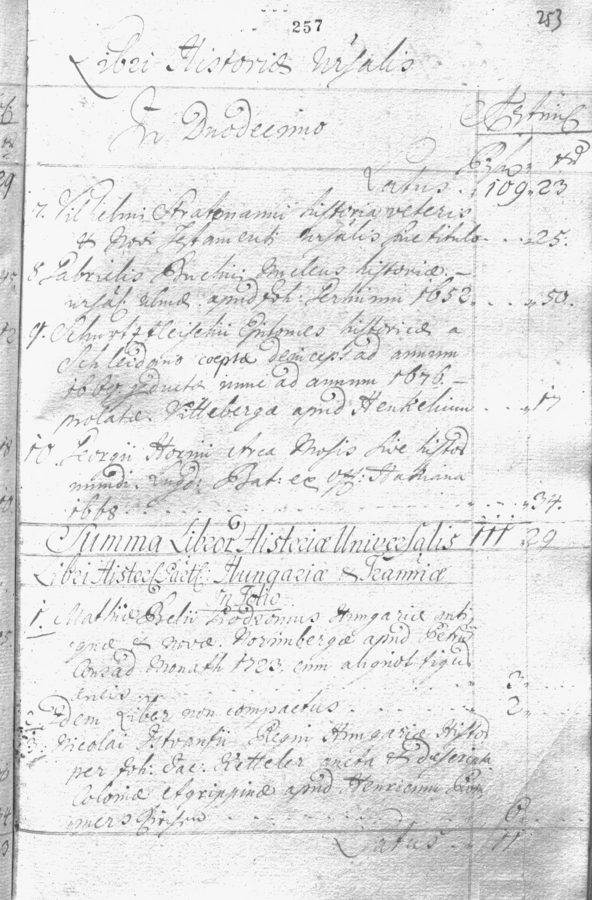 257
253
Libri Historiæ Ursalis
In Duodecimo
Æstim
xr
Latus . 109. 23
7. Vilhelmi Stratemanni historia veteris
& Novi Testamenti ursalis sive titulo . . . 25.
8. Gabrielis Bucelini Nucleus historiæ
ursal: Ulmæ apud Joh: 1652. . . . 50.
9. Schurtzfleischii Epitomes historicæ a
Schleidano cœptæ deinceps ad annum
1669 nunc ad annum 1676.
prolatæ. Vittebergæ apud Henkelium . . . 17
10. Georgii Hornii Arca Mosis sive histor
mundi. Lugd: Bat: ex Off: Hakiana
1668 . . . . 34.
Summa Libror Historiæ Universalis 111 29
Libri Histor Partic Hungariæ & Tranniæ
in Folio
1. Mathiæ Belii Prodromus Hungariæ anti
quæ & novæ. Norimbergæ apud Petrum
Conrad Monath 1723. cum aliquot figuris
æneis . . . 3.
2. Idem Liber non compactus . . . 2.
3. Nicolai Istvanfii Regni Hungariæ Histor
per Joh: Jac: Ketteler aucta & descripta
Coloniæ Agrippinæ apud Henricum Rom
merskirchen . . . 6
Latus . . 11